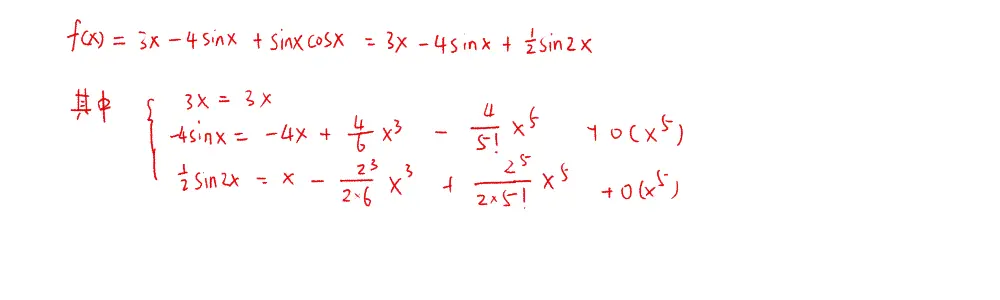 f(x) = 3x - 4sinx + sinxcosx = 3x - 4sinx + 1/2 sin2x
其中 { 3x = 3x
-4sinx = -4x + 4/6 x³ - 4/5! x⁵ + o(x⁵)
1/2 sin2x = x - 2³/(2·6) x³ + 2⁵/(2×5!) x⁵ + o(x⁵)